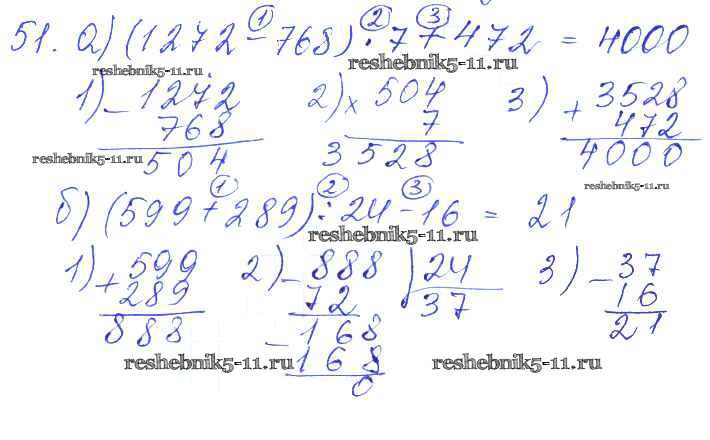 ① ② ③
51. а) (1272 - 768) · 7 + 472 = 4000
reshebnik5-11.ru
reshebnik5-11.ru
1) - 1272 2) × 504 3) + 3528
768 7 472
504 3528 4000
reshebnik5-11.ru
reshebnik5-11.ru
① ② ③
б) (599 + 289) : 24 - 16 = 21
reshebnik5-11.ru
1) + 599 2) - 888 | 24 3) - 37
289 72 37 16
888 - 168 21
168
reshebnik5-11.ru
reshebnik5-11.ru
0